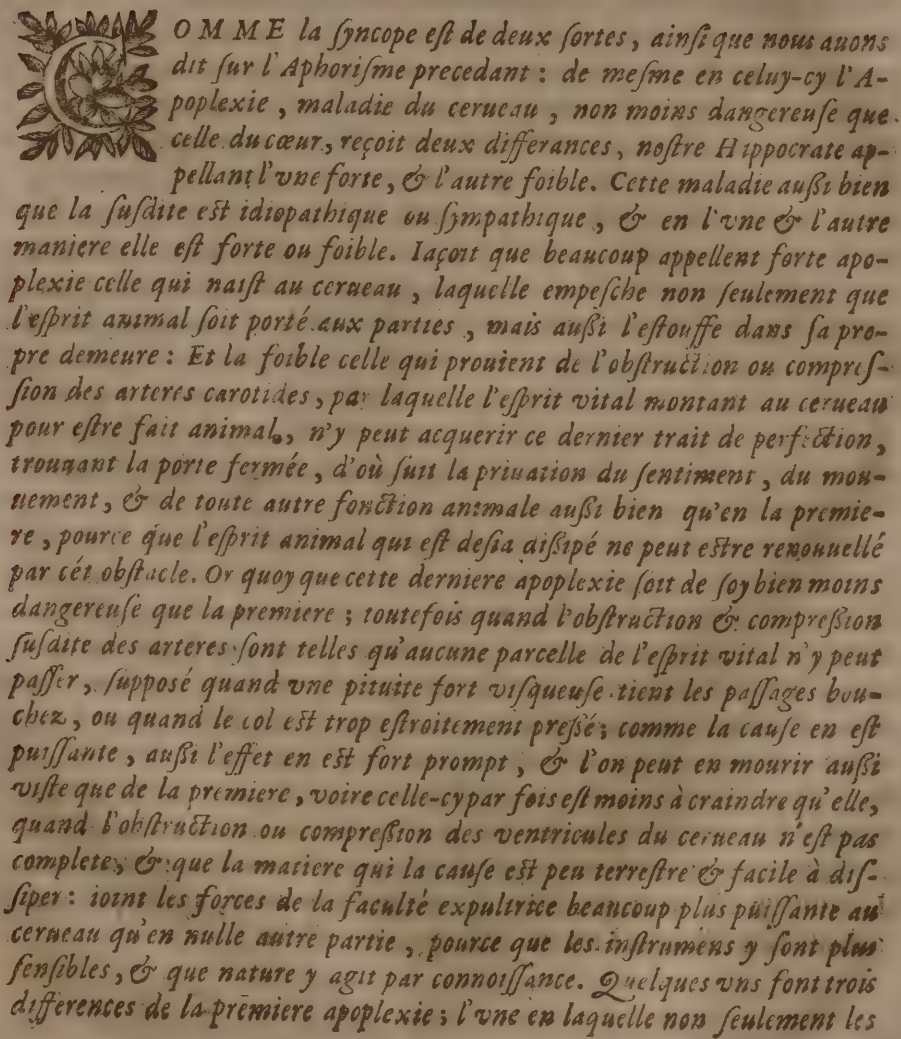 COMME la ſyncope eſt de deux ſortes, ainſi que nous auons
dit ſur l'Aphoriſme precedant : de meſme en celuy-cy l'A-
poplexie, maladie du cerueau, non moins dangereuſe que
celle du cœur, reçoit deux differances, noſtre Hippocrate ap-
pellant l'vne forte, & l'autre foible. Cette maladie auſsi bien
que la ſuſdite eſt idiopathique ou ſympathique, & en l'vne & l'autre
maniere elle eſt forte ou foible. Iaçoit que beaucoup appellent forte apo-
plexie celle qui naiſt au cerueau, laquelle empeſche non ſeulement que
l'eſprit animal ſoit porté aux parties, mais auſsi l'eſtouffe dans ſa pro-
pre demeure : Et la foible celle qui prouient de l'obſtruction ou compreſ-
ſion des arteres carotides, par laquelle l'eſprit vital montant au cerueau
pour eſtre fait animal, n'y peut acquerir ce dernier trait de perfection,
trouuant la porte fermée, d'où ſuit la priuation du ſentiment, du mou-
uement, & de toute autre fonction animale auſsi bien qu'en la premie-
re, pource que l'eſprit animal qui eſt deſia diſsipé ne peut eſtre renouuellé
par cét obſtacle. Or quoy que cette derniere apoplexie ſoit de ſoy bien moins
dangereuſe que la premiere ; toutefois quand l'obſtruction & compreſsion
ſuſdite des arteres ſont telles qu'aucune parcelle de l'eſprit vital n'y peut
paſſer, ſuppoſé quand vne pituite fort viſqueuſe tient les paſſages bou-
chez, ou quand le col eſt trop eſtroitement preſsé ; comme la cauſe en eſt
puiſſante, auſsi l'effet en eſt fort prompt, & l'on peut en mourir auſsi
viſte que de la premiere, voire celle-cy par fois eſt moins à craindre qu'elle,
quand l'obſtruction ou compreſsion des ventricules du cerueau n'eſt pas
complete, & que la matiere qui la cauſe eſt peu terreſtre & facile à diſ-
ſiper : ioint les forces de la faculté expultrice beaucoup plus puiſſante au
cerueau qu'en nulle autre partie, pource que les inſtrumens y ſont plus
ſenſibles, & que nature y agit par connoiſſance. Quelques vns font trois
differences de la premiere apoplexie ; l'vne en laquelle non ſeulement les